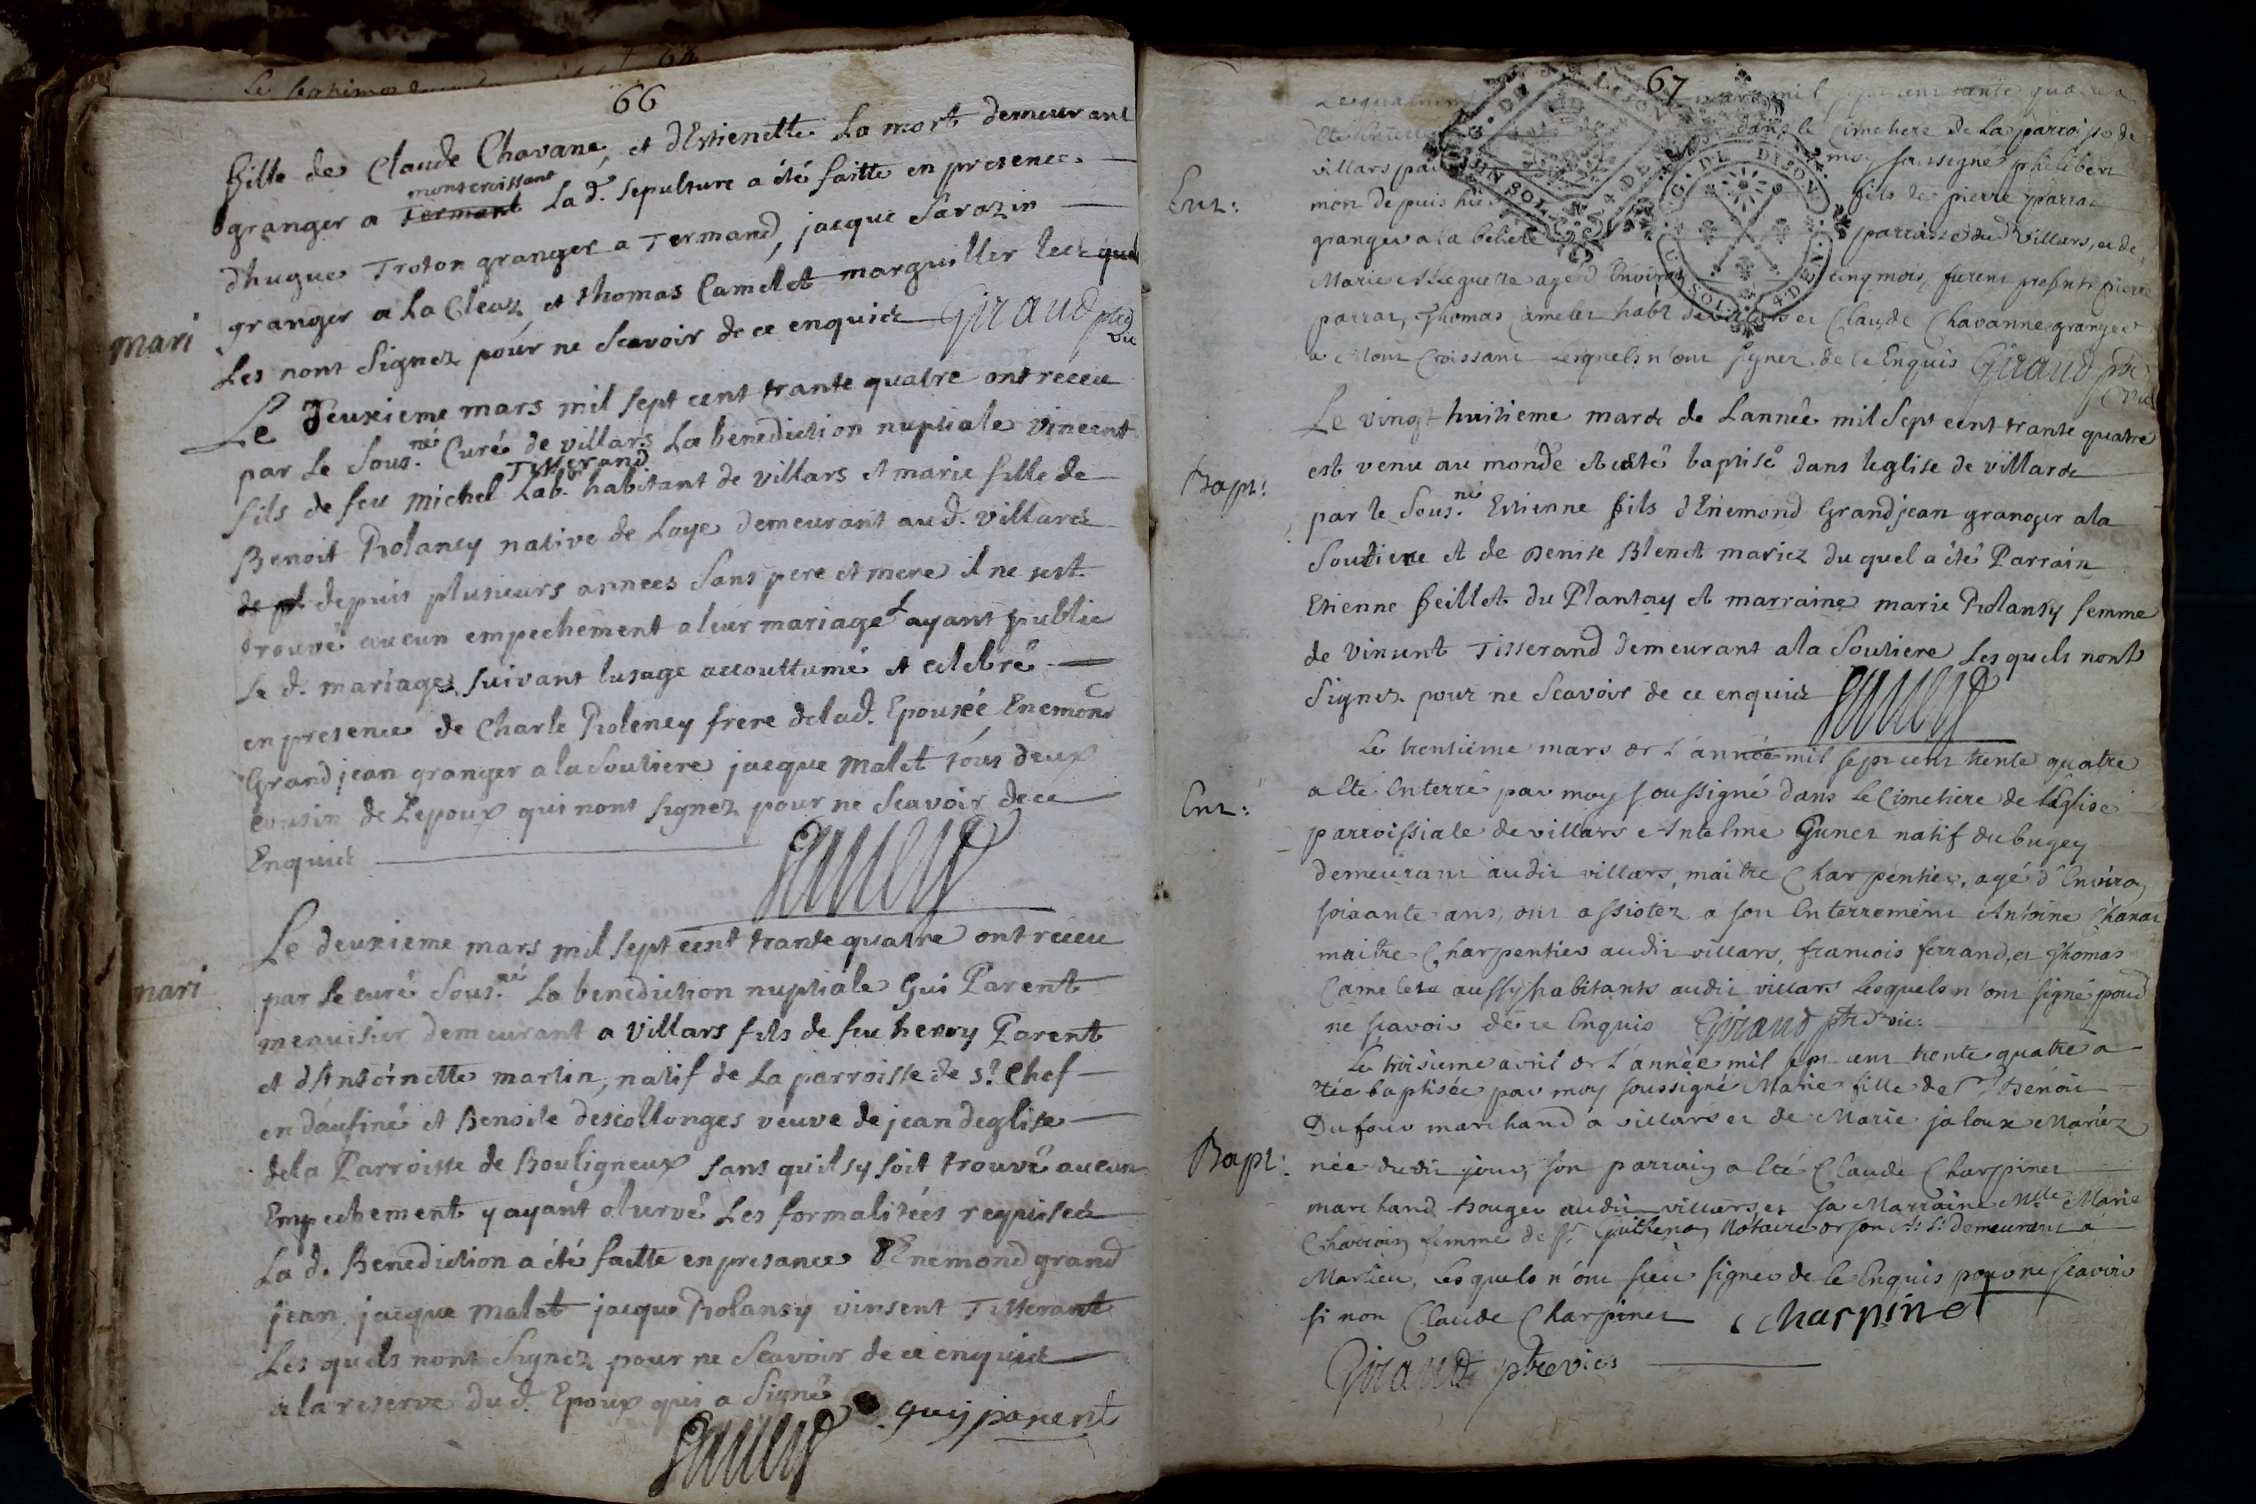 66
fille de Claude Chavane, et dEstienette La mort demeurant
montcroissant
granger a Termant La d. sepulture a été faitte en presence
dhugue Troton granger a Termand, jacque Sarazin
granger a La Cleaz et thomas Camelet marguiller lesquel
Les nont Signez pour ne Scavoir de ce enquict Giraud ptre
vic
mari
Le deuxieme mars mil sept cent trante quatre ont receu
par Le Sous.né Curé de villars La benediction nuptiale vincent
Tisserand
fils de feu michel Lab. habitant de villars et marie fille de
Benoit Rolancy native de Loye demeurant au d. villards
depuis plusieurs annees Sans pere et mere il ne sest
trouvé aucun empechement a leur mariage ayant publie
le d. mariage suivant lusage accouttumé et celebré
en presence de Charle Roleney frere de lad. Epousée Enemond
Grand jean granger a la Soutiere jacque malet tous deux
cousin de Lepoux qui nont signez pour ne Scavoir de ce
Enquict
mari
Le deuxieme mars mil sept cent trante quatre ont receu
par Le curé Sous.né La benediction nuptiale Gui Parent
menuisier demeurant a villars fils de feu henry Parent
et dAntoinette martin, natif de La parroisse de St. Chef
en daufiné et Benoite descollonges veuve de jean deglise
dela Parroisse de Bouligneux sans quil sy soit trouvé aucun
Empechement y ayant observé Les formalitées requises
La d. Benediction a été faitte en presance dEnemond grand
jean jacque malet jacque Rolansy vinsent Tisserant
Les quels nont Signez pour ne Scavoir de ce enquict
a la reserve du d. Epoux qui a Signé
guy parent
67
mars mil sept cent trante quatre a
dans le Cimetiere de La parroisse de
villars par moy soussigné philibert
Ent:
mort depuis hier fils de pierre parrat
granger a la parroisse dud villars, et de
Marie aagé d'Environ cinq mois, furent presents pierre
parrat, Thomas Camelet habt de villars et Claude Chavanne granger
a Mont Croissant Lesquels n'ont signez de ce Enquis Giraud ptre
vic
Le vingt huitieme mars de Lannée mil Sept cent trante quatre
est venu au monde et a été baptisé dans leglise de villards
Bapt:
par le Sous.né Etienne fils dEnemond Grandjean granger a la
Soutiere et de Denise Blenet mariez du quel a été Parrain
Etienne feillet du Plantay et marraine marie Rolansy femme
de Vinsent Tisserand demeurant a la Soutiere Les quels nont
Signez pour ne Scavoir de ce enquict
Le trentiéme mars de L'année mil sept cent trente quatre
a Eté Enterré par moy soussigné dans Le Cimetiere de L'Eglise
Ent:
parroissiale de villars Antelme Gunet natif du bugey
demeurant audit villars, maitre Charpentier, agé d'Environ
soixante ans, ont assistez a son Enterrement Antoine
maitre Charpentier audit villars, francois ferrand, et Thomas
Camelet aussy habitants audit villars Lesquels n'ont signé pour
ne scavoir de ce Enquis Giraud ptre vic:
Le troisieme avril de L'année mil sept cent trente quatre a
été baptisée par moy soussigné Marie fille de Sr Benoit
Dufour marchand a villars et de Marie jaloux Mariez
Bapt:
née dudit jour, son parrain a Eté Claude Charpinet
marchand Bouger audit villars et sa Marraine Mlle Marie
Charrain femme de Sr Guilhenon Notaire demeurant a
Marlieu, Lesquels n'ont sceu signer de ce Enquis pour ne scavoir
si non Claude Charpinet Charpinet
Giraud ptre vic
G. DE DIJON
UN SOL
4 DEN